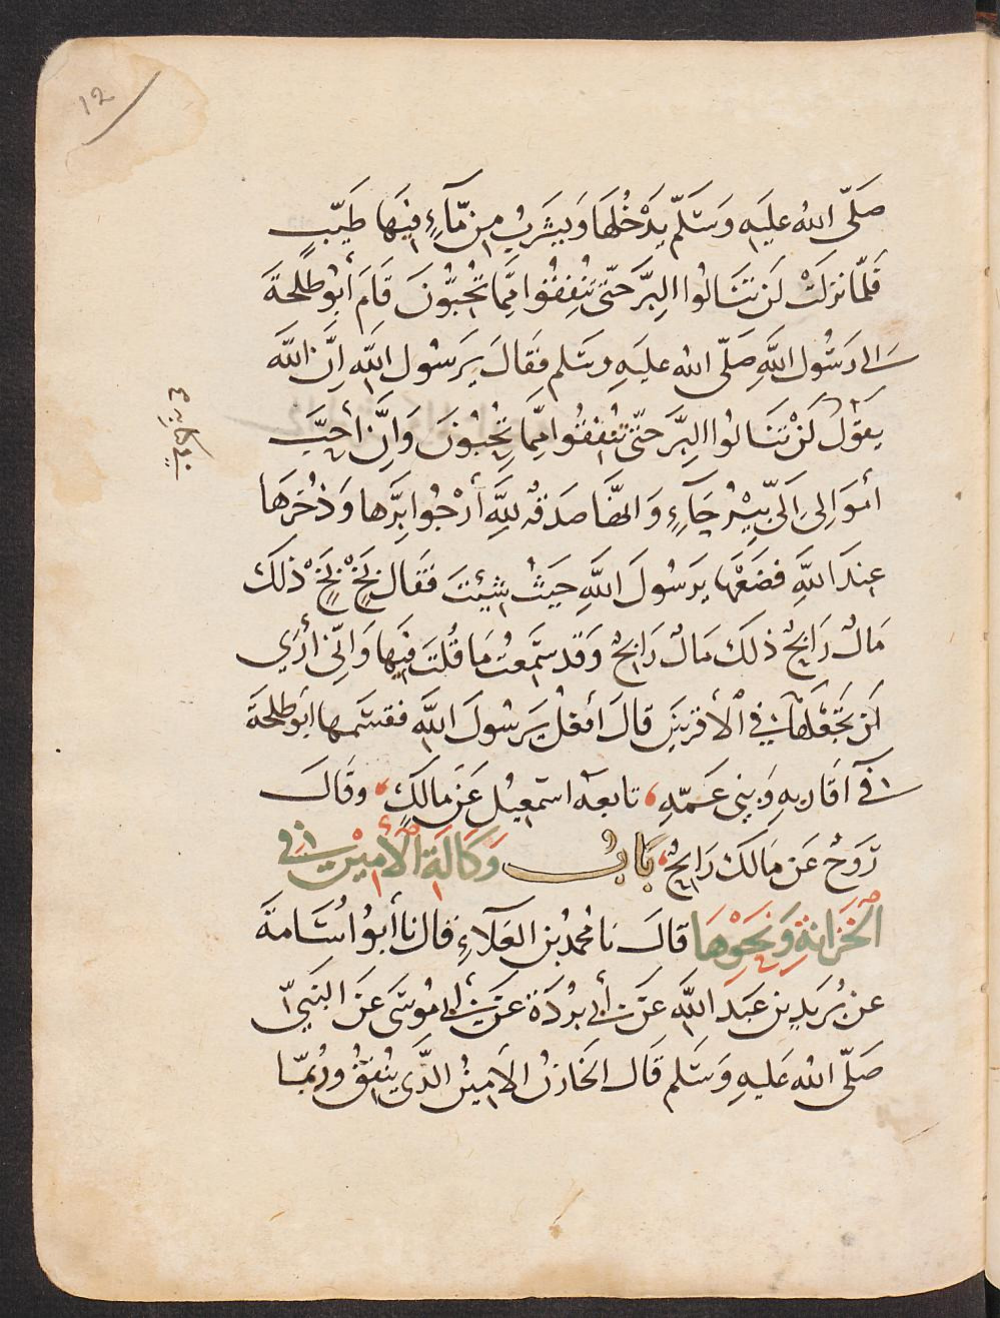 12
صَلّى الله علَيهِ وَسَلّم يَدْخُلُهَا وَيَشْرَبُ مِن مّآءٍ فِيهَا طَيّبٍ
فَلمّا نزلَتْ لَن تَنَالُوا البِرَّ حَتّى تُنْفِقُوا مِمَّا تُحِبُّونَ قَامَ أبُو طلحَةَ
الى رَسُول اللَّهِ صَلّى الله عليَهِ وسَلم فَقَالَ يرَسُول اللَّهِ اِنَّ اللَّهَ
يقوْلُ لَنْ تَنَالوُا البِرَّ حَتّى تُنْفِقُوا مِمَّا تُحِبُونَ وَاِنَّ أحَبَّ
أموَالِى اِلَىّ بِيْرُحَآءٍ وَانّهَا صدَقةٌ للهِ أرْجُوا بِرَّها وَذُخرَهَا
عِندَ اللَّهِ فضَعْهَا يرَسُولَ اللَّهِ حَيثُ شِئْتَ فَقَال بَخٍْ بَخٍْ ذلكَ
مَالٌ رَابحٌ ذلكَ مَالٌ رَابحٌ وَقد سَمعتُ مَا قُلتَ فِيهَا وَانِّى أرَى
اَن تجعَلهَا فى الْأقربينَ قالَ أفعَلُ يرَسُولَ اللَّهِ فقسَمها أبو طلحَةَ
فى آقَاربهِ وَبنى عَمّهِ، تابعهٗ اسمعِيل عَن مالكٍ، وقَالَ
رَوحٌ عَن مَالك رَابحٌ، بَابُ وَكَالَة الأمِيْن فى
الخَزانةِ وَنحَوْهَا قالَ نا محمدُ بن العَلآءِ قال نا أبُو اسَامةَ
عن بُرَيدِ بن عَبدِ اللَّهِ عَن أبى بُرْدَةَ عَن أبى مُوسَى عَن النبىّ
صَلّى الله عَليهِ وَسَلم قَال الخَازنُ الأَمينُ الذّى يُنفِقُ ورُبّمَا